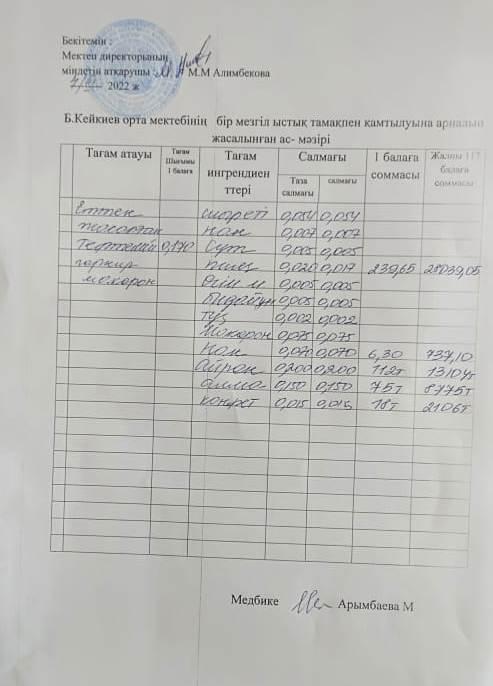 Бекітемін :
Мектеп директорының
міндетін атқарушы : М.М Алимбекова
2022 ж
Б.Кейкиев орта мектебінің бір мезгіл ыстық тамақпен қамтылуына арналып
жасалынған ас- мәзірі
Тағам атауы Тағам Шығымы 1 балаға Тағам ингрендиенттері Салмағы 1 балаға соммасы Жалпы 117 балаға соммасы
Таза салмағы салмағы
Еттен сиыр еті 0,054 0,054
жасалған нан 0,007 0,007
Тефтели 0,170 Сүт 0,005 0,005
гарнир пияз 0,020 0,017 239,65 28039,05
мокорон Өсім м 0,005 0,005
бидай ұн 0,005 0,005
тұз 0,002 0,002
Мокорон 0,075 0,075
Нан 0,070 0,070 6,30 737,10
Айран 0,200 0,200 112т 13104т
алма 0,150 0,150 75т 8775т
конфет 0,015 0,015 18т 2106т
Медбике Арымбаева М